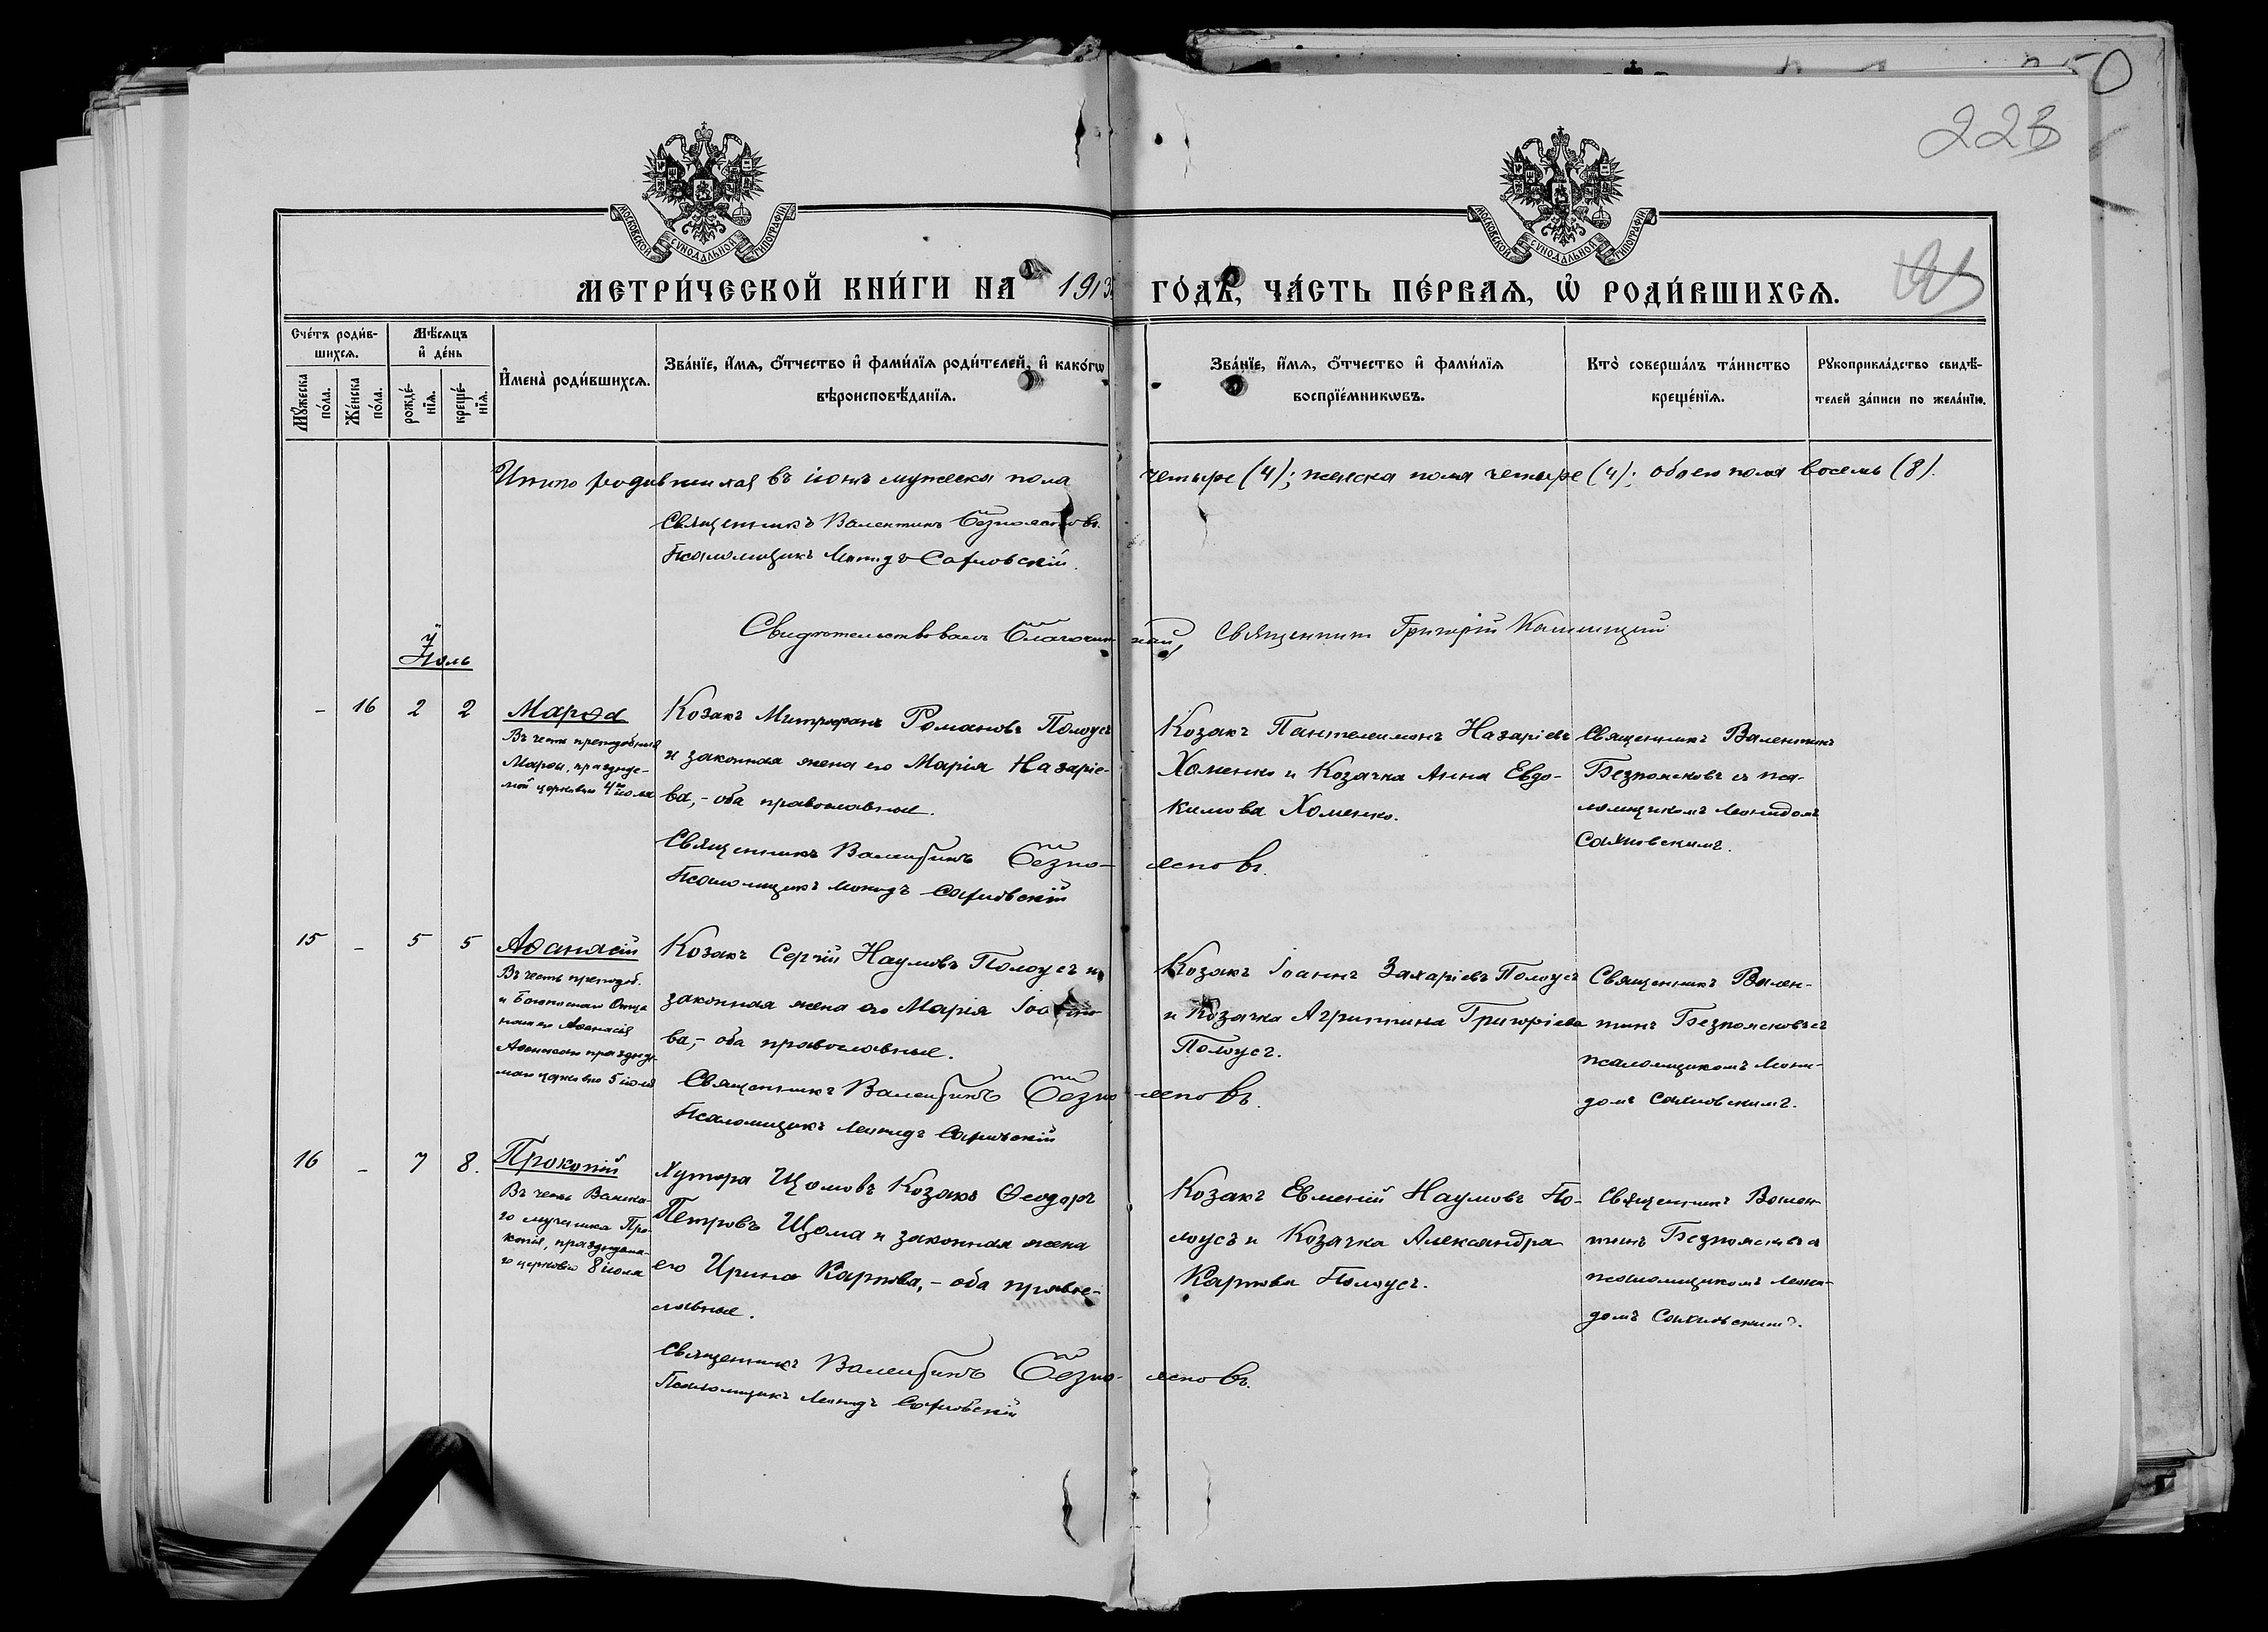 50
223
МОСКОВСКОЙ СѴНОДАЛЬНОЙ ТИПОГРАФІИ
МОСКОВСКОЙ СѴНОДАЛЬНОЙ ТИПОГРАФІИ
МЕТРИ́ЧЕСКОЙ КНИ́ГИ НА 1913 ГО́ДЪ, ЧА́СТЬ ПЕ́РВАѦ, Ѽ РОДИ́ВШИХСѦ.
Сче́тъ роди́в-
шихсѧ.
Мꙋ́жеска по́ла.
Же́нска по́ла.
Мѣ́сѧцъ
и҆ де́нь
рожде́-
нїѧ.
креще́-
нїѧ.
И҆мена̀ роди́вшихсѧ.
Зва́нїе, и҆́мѧ, ѻ҆́тчество и҆ фами́лїѧ роди́телей, и҆ како́гѡ
вѣроисповѣ́данїѧ.
Зва́нїе, и҆́мѧ, ѻ҆́тчество и҆ фами́лїѧ
воспрїе́мникѡвъ.
Кто̀ соверша́лъ та́инство
креще́нїѧ.
Рꙋкоприкла́дство свидѣ́-
телей за́писи по жела́нїю.
Итого родившихся въ іюнѣ мужеска пола четыре (4); женска пола четыре (4); обоего пола восемь (8).
Священникъ Валентинъ Безпоясковъ.
Псаломщикъ Леонидъ Сахновскій.
Свидѣтельствовалъ Благочинный, Священникъ Григорій
Іюль
- 16 2 2
Марѳа
Въ честь преподобныя
Марѳы, празднуе-
мой церковью 4го іюля
Козакъ Митрофанъ Романовъ Полоусъ
и законная жена его Марія Назаріе-
ва,- оба православные.
Священникъ Валентинъ Безпо-
ясковъ.
Псаломщикъ Леонидъ Сахновскій
Козакъ Пантелеимонъ Назаріевъ
Хоменко и Козачка Анна Евдо-
кимова Хоменко.
Священникъ Валентинъ
Безпоясковъ съ пса-
ломщикомъ Леонидомъ
Сахновскимъ.
15 - 5 5
Аѳанасій
Въ честь преподоб.
и Богоноснаго Отца
нашего Аѳанасія
Аѳонскаго праздну-
маго церковью 5 іюля
Козакъ Сергій Наумовъ Полоусъ и
законная жена его Марія Іоанно-
ва,- оба православные.
Священникъ Валентинъ Безпо-
ясковъ.
Псаломщикъ Леонидъ Сахновскій
Козакъ Іоаннъ Захаріевъ Полоусъ
и Козачка Агриппина Григоріева
Полоусъ.
Священникъ Вален-
тинъ Безпоясковъ съ
псаломщикомъ Леони-
домъ Сахновскимъ.
16 - 7 8.
Прокопій
Въ честь Велика-
го мученика Про-
копія, празднуема-
го церковью 8 іюля
Хутора Щомовъ Козакъ Ѳеодоръ
Петровъ Щома и законная жена
его Ирина Карпова,- оба право-
славные.
Священникъ Валентинъ Безпо-
ясковъ.
Псаломщикъ Леонидъ Сахновскій
Козакъ Евменій Наумовъ По-
лоусъ и Козачка Александра
Карпова Полоусъ.
Священникъ Вален-
тинъ Безпоясковъ съ
псаломщикомъ Леони-
домъ Сахновскимъ.